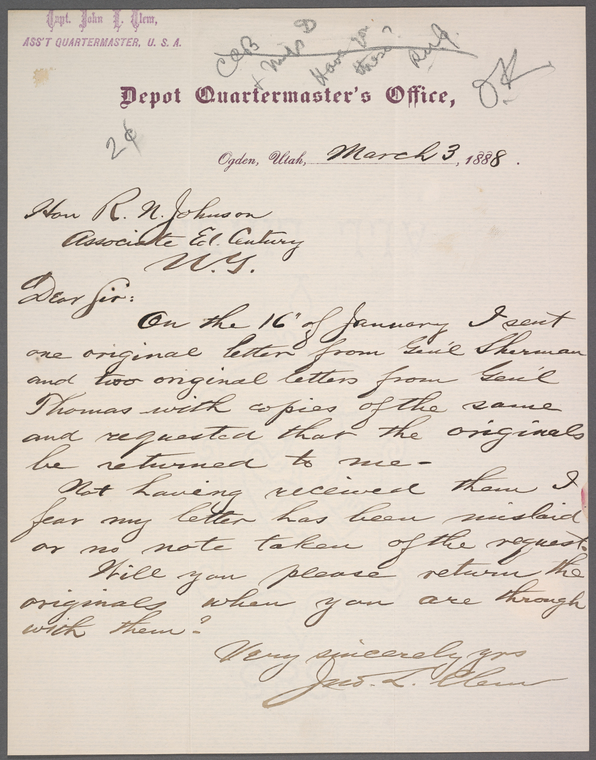 Capt. John L. Clem,
ASS'T QUARTERMASTER, U. S. A.
CCB
+ Miss D
Have you
these?
OK
Depot Quartermaster's Office,
2¢
Ogden, Utah, March 3, 1888.
Hon R. N. Johnson
Associate Ed. Century
N.Y.
Dear Sir:
On the 16" of January I sent
one original letter from Gen'l Sherman
and two original letters from Gen'l
Thomas with copies of the same
and requested that the originals
be returned to me-
Not having received them I
fear my letter has been mislaid
or no note taken of the request.
Will you please return the
originals when you are through
with them?
Very sincerely yrs
Jno. L. Clem